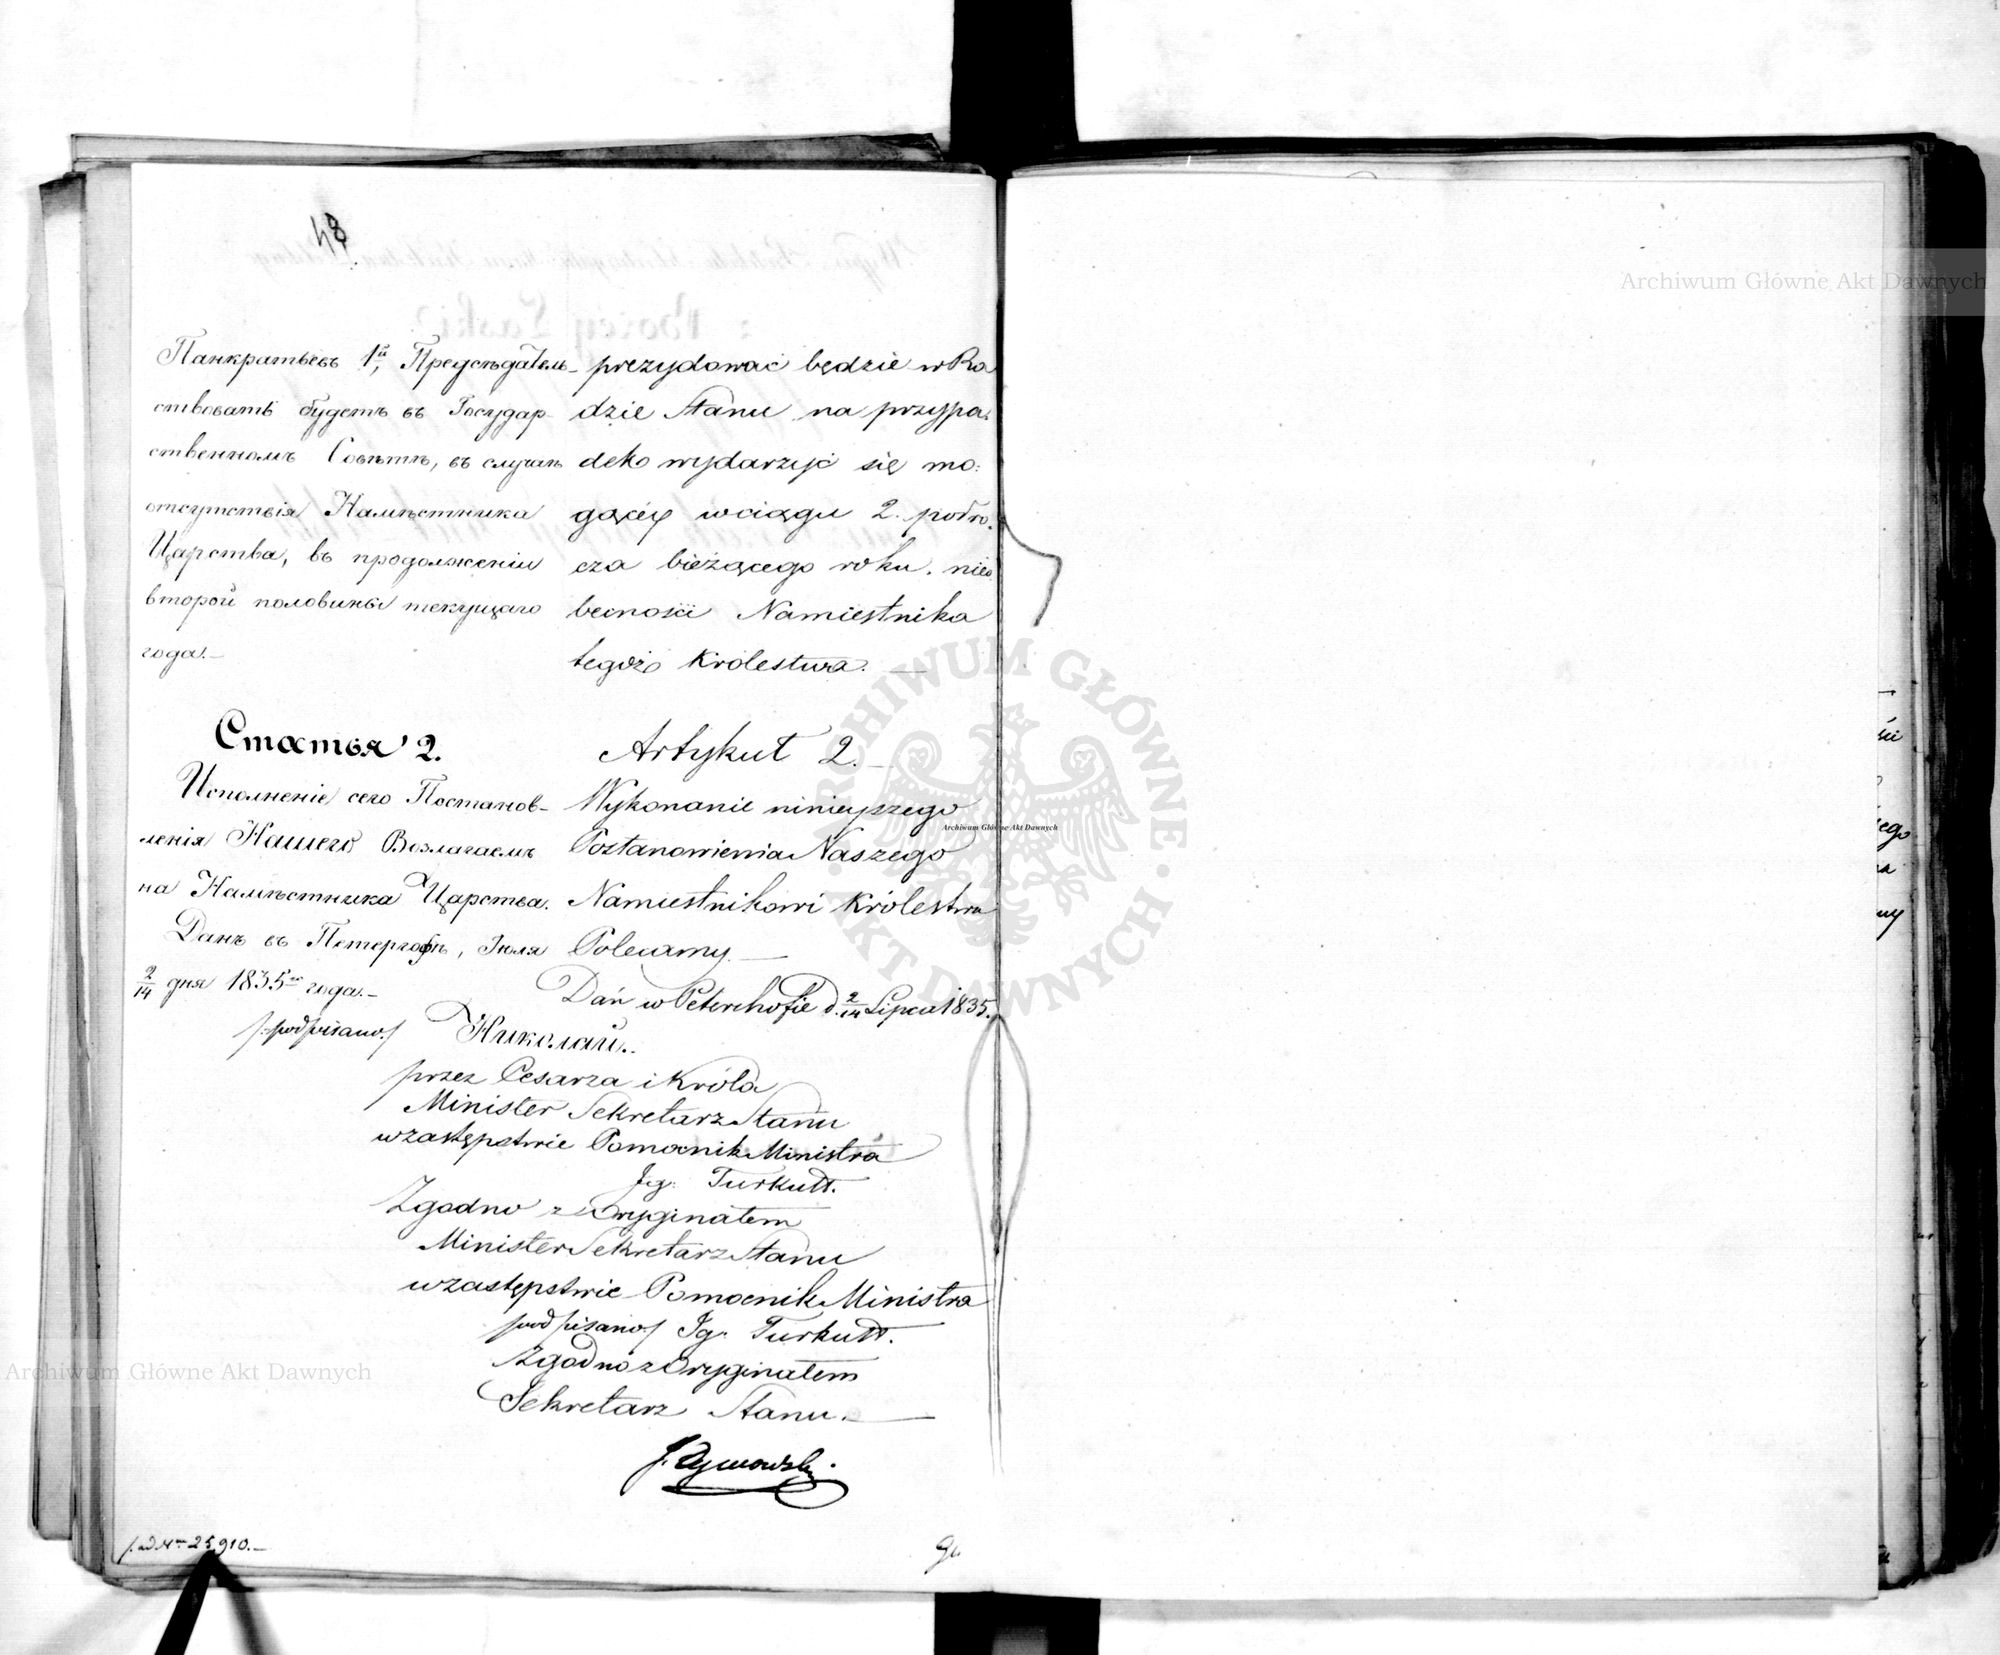 48
Панкратьевъ 1й, Предсѣдатель-
ствовать будетъ въ Государ-
ственномъ Совѣтѣ, въ случаѣ
отсутствія Намѣстника
Царства, въ продолженіи
второй половины текущаго
года.—
prezydować będzie w Ra
dzie Stanu na przypa-
deko wydarzyć się mo:
gącéy w ciągu 2. półro-
cza bieżącego roku. nieo
becności Namiestnika
tegoż Królestwa. —
Статья 2.
Исполненіе сего Постанов-
ленія Нашего Возлагаемъ
на Намѣстника Царства.
Данъ въ Петергофѣ, Іюля
2/14 дня 1835го года.—
Artykuł 2.—
Wykonanie ninieyszego
Postanowienia Naszego
Namiestnikowi Królestwa
Polecamy. —
Dań w Peterhofie d. 2/14 Lipca 1835.
/:podpisano:/ Николай.
przez Cesarza i Króla
Minister Sekretarz Stanu
w zastępstwie Pomocnik Ministra
Ig. Turkułł.
Zgodno z Oryginałem
Minister Sekretarz Stanu
w zastępstwie Pomocnik Ministra
podpisano:/ Ig. Turkułł.
Zgodno z Oryginałem
Sekretarz Stanu. —
J. Tymowski.
ad Nrm 25,910.—
Archiwum Główne Akt Dawnych
Archiwum Główne Akt Dawnych
Archiwum Główne Akt Dawnych
ARCHIWUM GŁÓWNE · AKT DAWNYCH ·